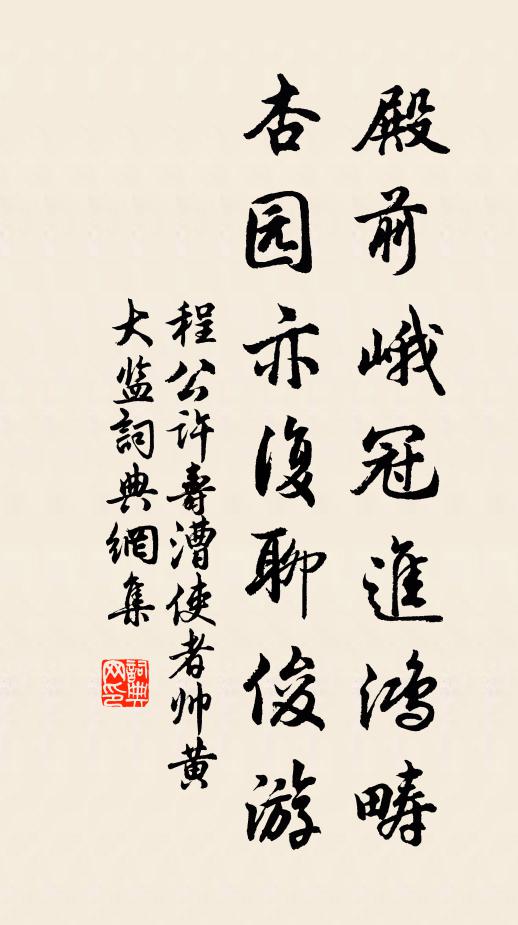 殿前峨冠進鴻疇
杏园亦復聊俊游
程公许壽漕使者帅黄
大监詞典網集
詞典网印